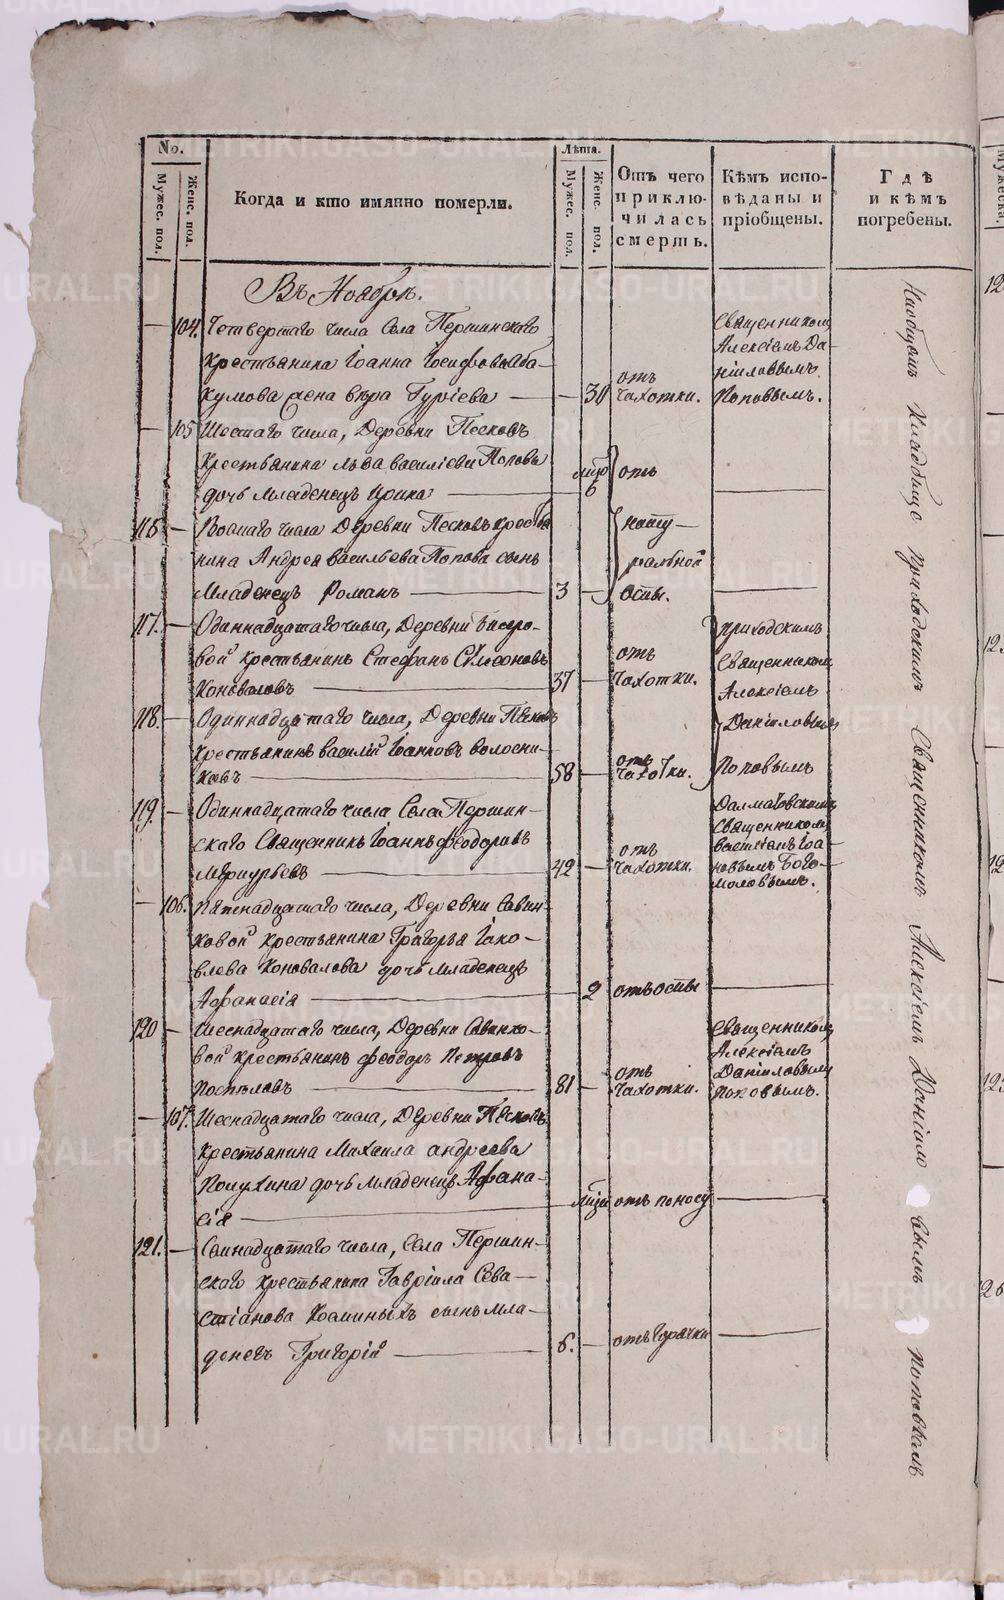 No.
Мужес. пол.
Женс. пол.
Когда и кто имянно померли.
Лѣта.
Мужес. пол.
Женс. пол.
Отъ чего
приклю-
чилась
смерть.
Кѣмъ испо-
вѣданы и
пріобщены.
Гдѣ
и кѣмъ
погребены.
Въ Ноябрѣ.
— 104. Четвертаго числа Села Першинскаго
Крестьянина Іоанна Іосифова Аба-
кумова жена Вѣра Гуріева — — 30 отъ чахотки.
Священникомъ
Алексіемъ Да-
ніиловымъ
Поповымъ.
— 105 Шестаго числа, Деревни Песковъ
Крестьянина Льва Василіева Попова
дочь младенецъ Ирина — 6 отъ
Восмаго числа Деревни Песковъ кресть
янина Андрея Васильева Попова сынъ
Младенецъ Романъ — 3 —
нату-
ральной
оспы.
117. — Одиннадцатаго числа, Деревни
вой крестьянинъ Стефанъ Симеоновъ
Коноваловъ — 37 — отъ чахотки.
приходскимъ
Священникомъ
Алексіемъ
Даніиловымъ
Поповымъ
118. — Одиннадцатаго числа, Деревни Песковъ
крестьянинъ Василій Іоанновъ Волосни-
ковъ — 58 — отъ чахотки.
119. — Одиннадцатаго числа Села Першин-
скаго Священникъ Іоаннъ Феодоровъ
Меркурьевъ — 42 — отъ чахотки.
Далматовскимъ
Священникомъ
Василіемъ Іоа-
новымъ Бого-
моловымъ.
— 106. Пятнадцатаго числа, Деревни Савин-
ковой крестьянина Григорья Іако-
влева Коновалова дочь младенецъ
Афанасія — 2 отъ оспы —
120 — Шеснадцатаго числа, Деревни Савинко-
вой крестьянинъ Феодоръ Петровъ
Поспѣловъ — 81 — отъ чахотки.
Священникомъ
Алексіемъ
Даніиловымъ
Поповымъ.
— 107. Шеснадцатаго числа, Деревни Песковъ
крестьянина Михаила Андреева
Полухина дочь младенецъ Афана-
сія — отъ поносу —
121. — Семнадцатаго числа, Села Першин-
скаго крестьянина Гавріила Сева-
стіанова Косминыхъ сынъ мла-
денецъ Григорій — 6. — отъ горячки —
кладбище приходскимъ Священникомъ Алексіемъ Даніило вымъ Поповымъ
METRIKI.GASO-URAL.RU